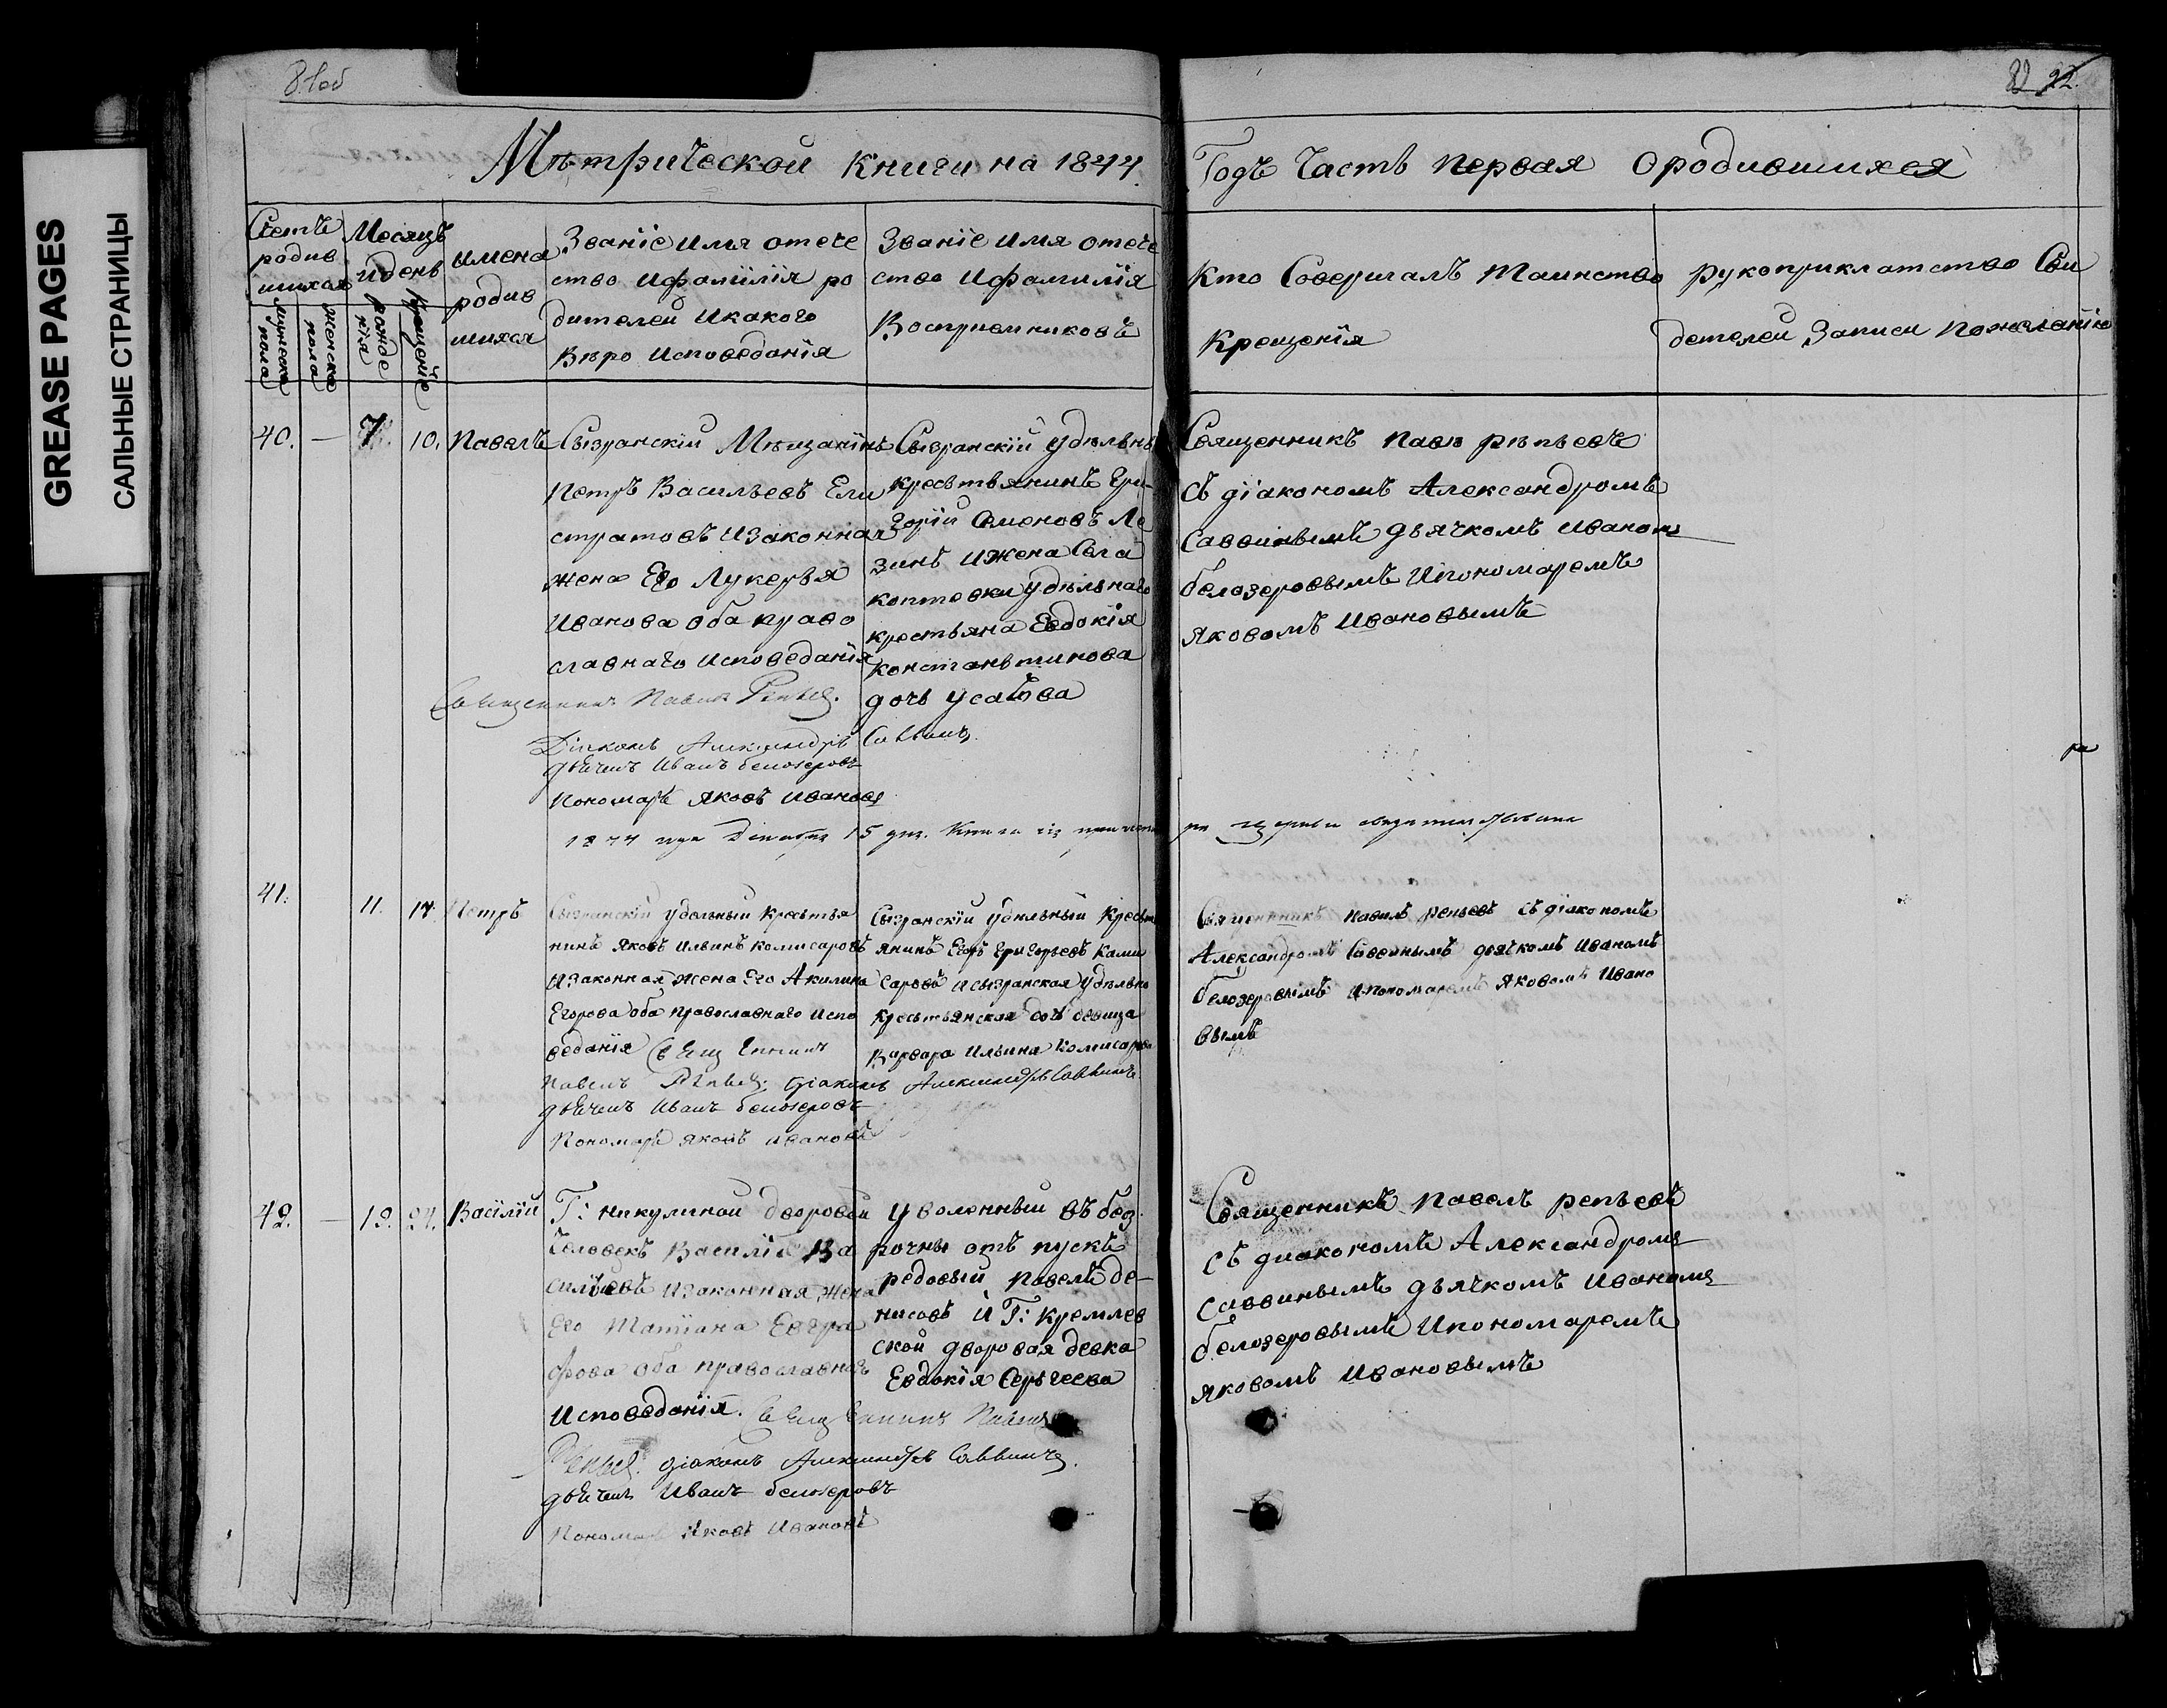 GREASE PAGES
САЛЬНЫЕ СТРАНИЦЫ
81об
82 92.
Мѣтрической книги на 1844. Годъ Часть первая О родившихся
Счетъ
родив
шихся
Мужеска
пола
Женска
пола
Месяцъ
и день
рожде
нія
крещеніе
имена
родив
шихся
Званіе имя отече
ство и фамилія ро
дителей и какого
Вѣро исповеданія
Званіе имя отече
ство и фамилія
Восприемниковъ
Кто Совершалъ таинство
Крещенія
рукоприклатство Сви
детелей Записи по желанію
40. — 7. 10. Павелъ
Сызранскій Мѣщанинъ
Петръ Васильевъ Ели
стратовъ и законная
жена Его Лукерья
Иванова оба право
славнаго исповеданія
Сызранскій удѣльны
кресьтьянинъ Гри-
горій Семеновъ Ле
зинъ и жена Села
коптевки удѣльнаго
крестьяна Евдокія
констаньтинова
дочь усачова
Священникъ Павелъ рѣпьевъ
Съ діакономъ Александромъ
Саввинымъ дьячкомъ Иваномъ
белозеровымъ и пономаремъ
яковомъ Ивановымъ
Священникъ Павелъ Рѣпьев.
Діаконъ Александръ Саввинъ
дьячекъ Иванъ белозеровъ
Пономарь яковъ Ивановъ
1844 года Декабря 15 дня. Книга сія
41. 11. 14. Петръ
Сызранскій удельный кресьтья
нинъ яковъ Ильинъ комисаровъ
и законная жена Его Акилина
Егорова оба православнаго испо
веданія Священникъ
Павелъ Рѣпьев. діаконъ Александръ Саввинъ
дьячекъ Иванъ белозеровъ
Пономарь яковъ Ивановъ
Сызранскій удѣльный кресьть
янинъ Егоръ Григорьевъ Коми
саровъ и сызранская удѣльна
кресьтьянская дочь девица
Варвара Ильина Комисарова
Священникъ павелъ репьевъ съ діакономъ
Александромъ Саввинымъ дьячкомъ Иваномъ
белозеровымъ и пономаремъ яковомъ Ивано
вымъ
42. — 19. 24. Васілій
Г: никулиной дворовой
человекъ Василій Ва
сильевъ и законная жена
Его Татіана Евгра
фова оба православнаго
исповеданія. Священникъ Павелъ
Рѣпьев. діаконъ Александръ Саввинъ.
дьячекъ Иванъ белозеровъ
Пономарь яковъ Ивановъ
Уволенный въ без
рочны отъ пускъ
редовый павелъ де-
нисовъ и Г: кремлев
ской дворовая девка
Евдокія Сергеева
Священникъ павелъ репьевъ
съ диакономъ Александромъ
саввинымъ дьячкомъ Иваномъ
белозеровымъ и пономаремъ
яковомъ Ивановымъ